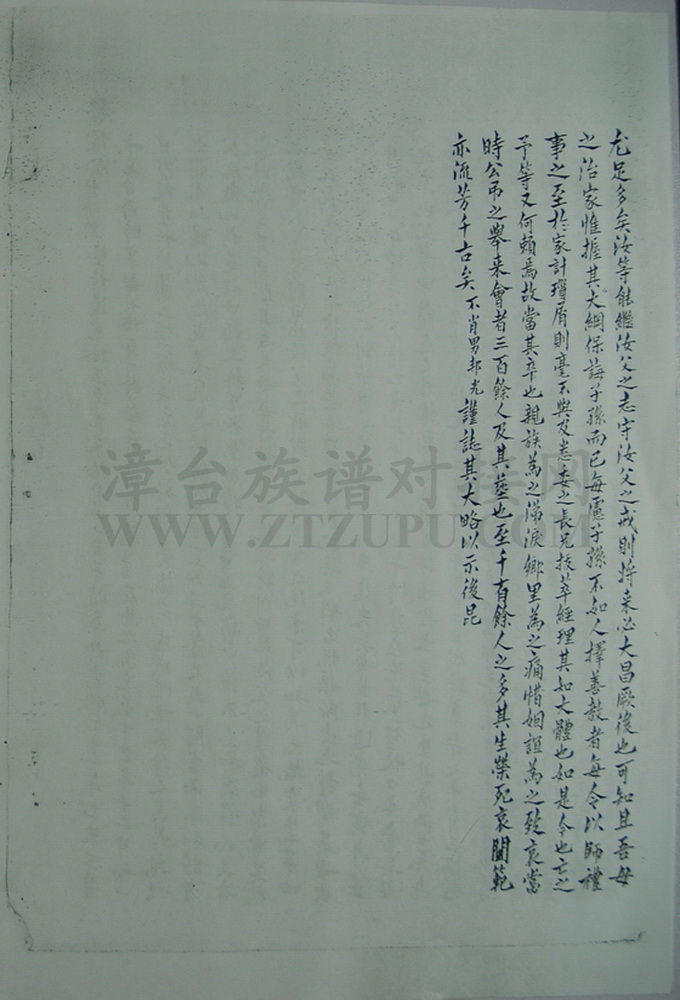 尤足多矣汝等能繼汝父之志守汝父之戒則將來必大昌厥後也可知且吾母
之治家惟握其大綱保誨子孫而已每慮子孫不如人擇善教者每令以師禮
事之至於家計瑣屑則毫不與及悉委之長兄拔萃經理其知大體也如是今也亡之
予等又何賴焉故當其卒也親族為之涕淚鄉里為之痛惜姻誼為之致哀當
時公吊之舉來會者三百餘人及其葬也至千有餘人之多其生榮死哀閫範
亦流芳千古矣 不肖男邦光謹誌其大略以示後昆
漳台族谱对接网
WWW.ZTZUPU.COM